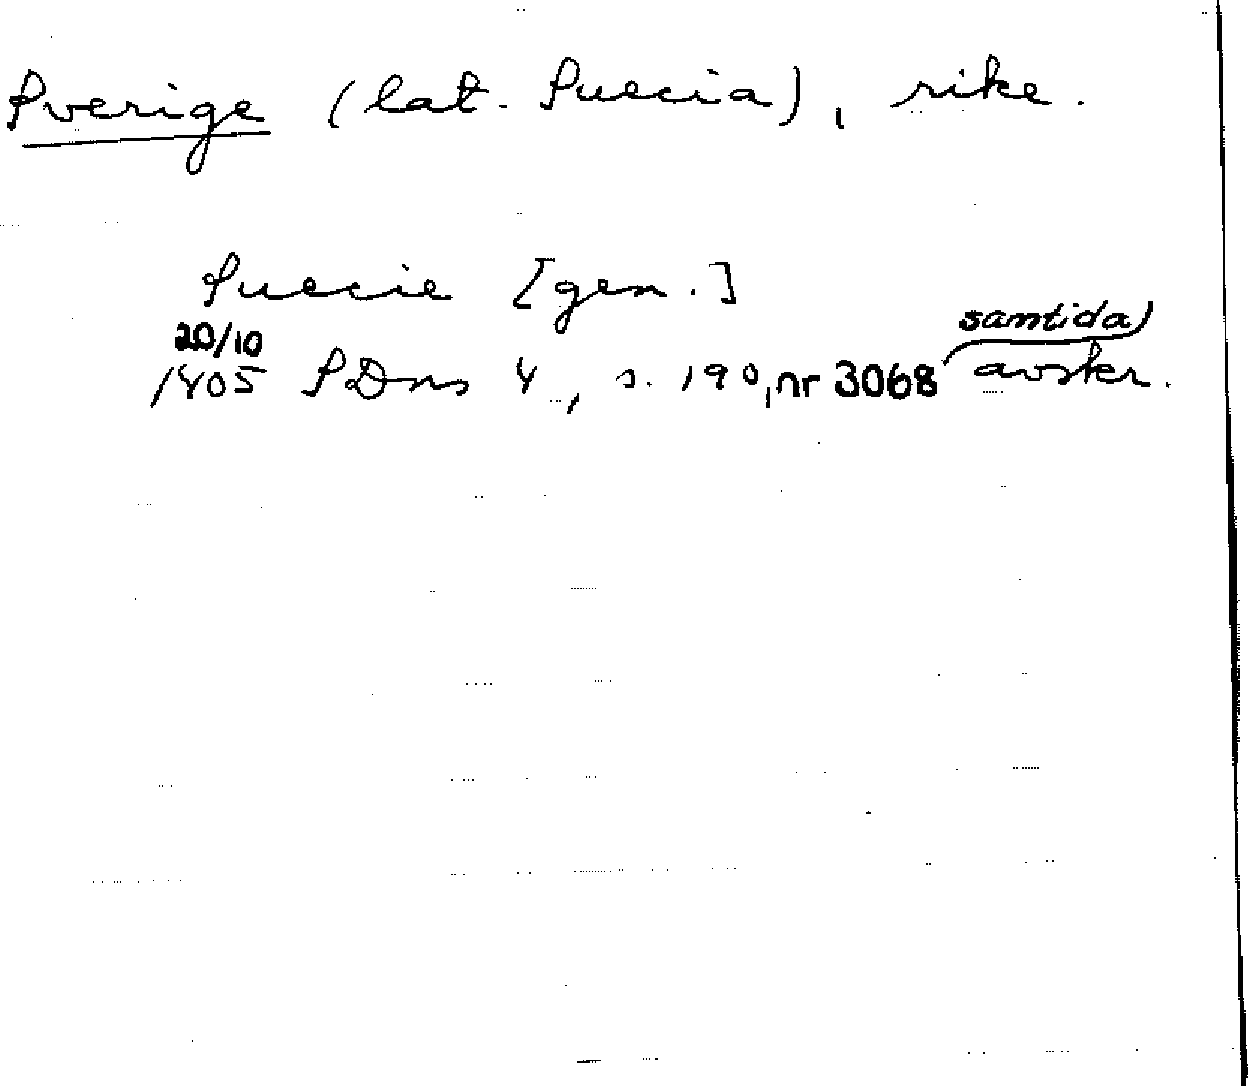 Sverige (lat. Suecia), rike.
Suecie [gen.]
20/10 samtida
1405 SDns 4, s. 190, nr 3068 avskr.